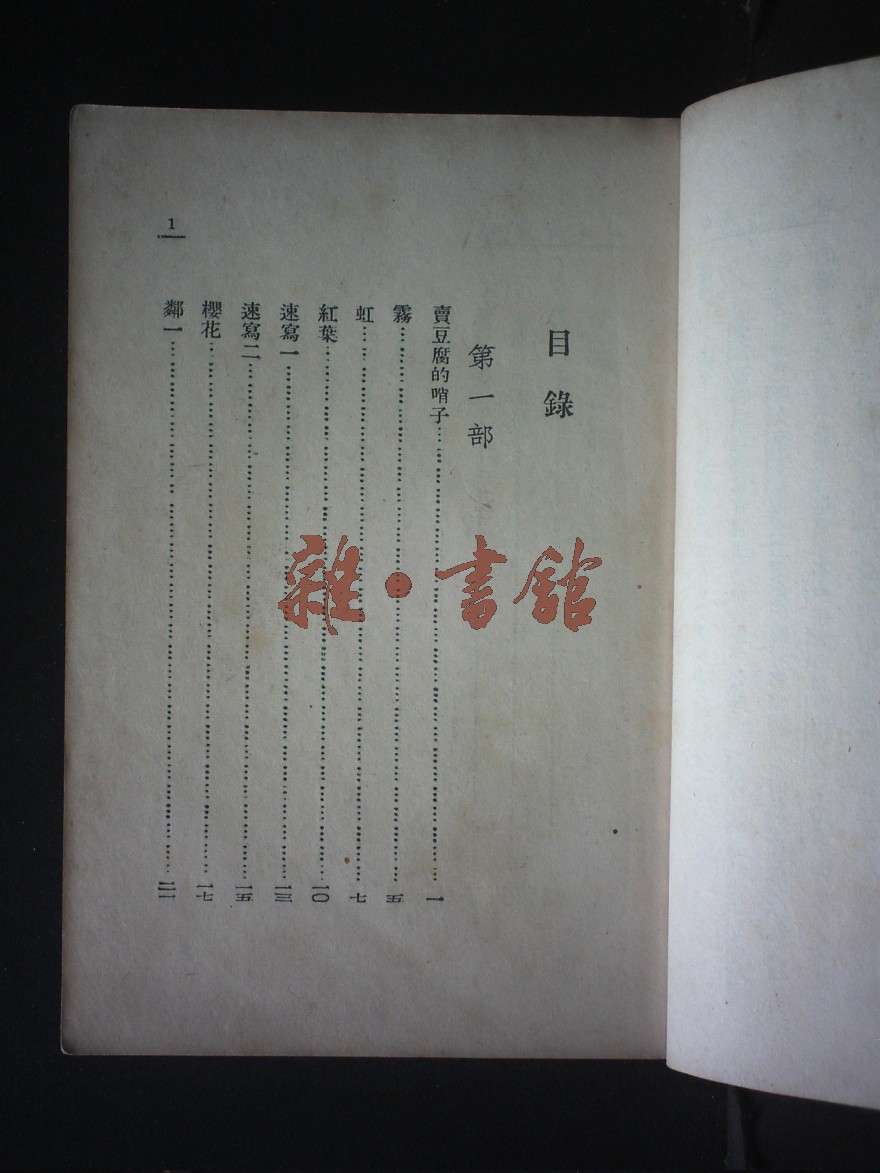 目錄
第一部
賣豆腐的哨子……一
霧……五
虹……七
紅葉……一〇
速寫一……一三
速寫二……一五
櫻花……一七
鄰一……二一
1
雜·書館